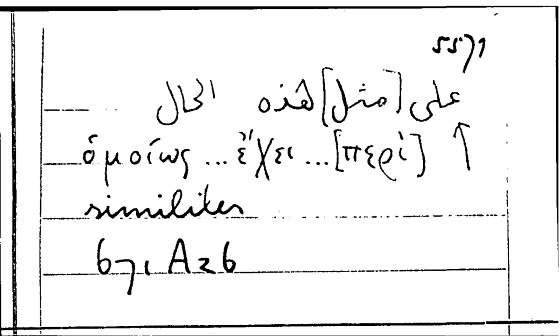 5571
على [مثل] هذه الحال
ὁμοίως ... ἔχει ... [περὶ] ↑
similiter
671 A26